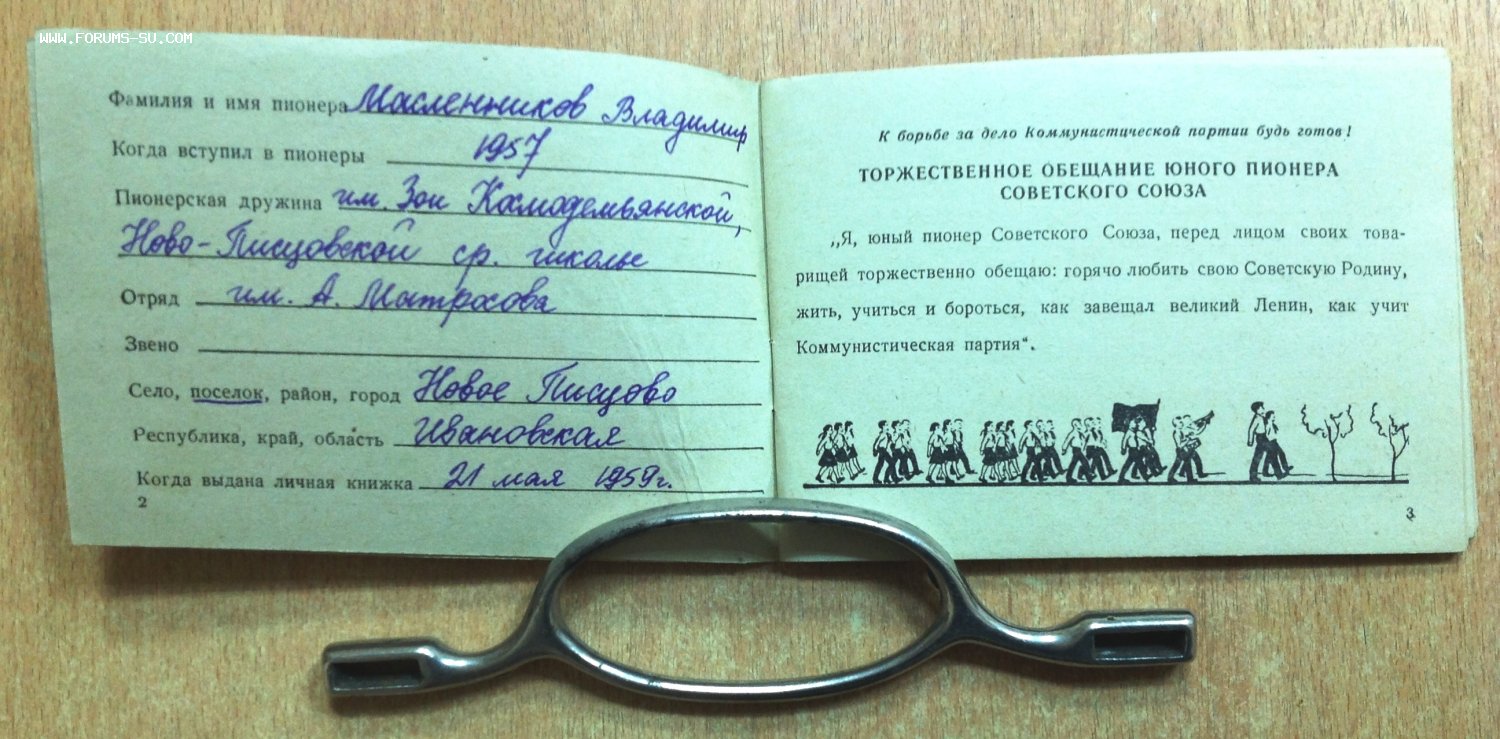 WWW.FORUMS-SU.COM
Фамилия и имя пионера Масленников Владимир
Когда вступил в пионеры 1957
Пионерская дружина им. Зои Космодемьянской,
Ново-Писцовской ср. школы
Отряд им. А. Матросова
Звено
Село, поселок, район, город Новое Писцово
Республика, край, область Ивановская
Когда выдана личная книжка 21 мая 1959г.
2
К борьбе за дело Коммунистической партии будь готов!
ТОРЖЕСТВЕННОЕ ОБЕЩАНИЕ ЮНОГО ПИОНЕРА
СОВЕТСКОГО СОЮЗА
„Я, юный пионер Советского Союза, перед лицом своих това-
рищей торжественно обещаю: горячо любить свою Советскую Родину,
жить, учиться и бороться, как завещал великий Ленин, как учит
Коммунистическая партия“.
3